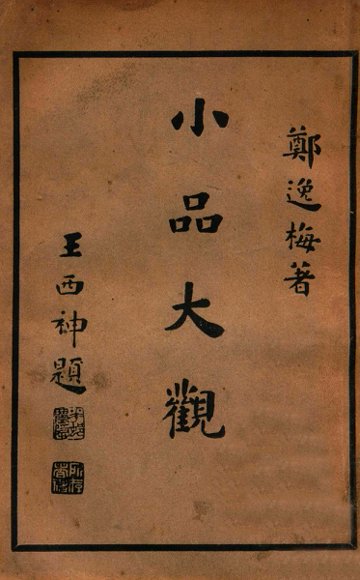 鄭逸梅著
小品大觀
王西神題